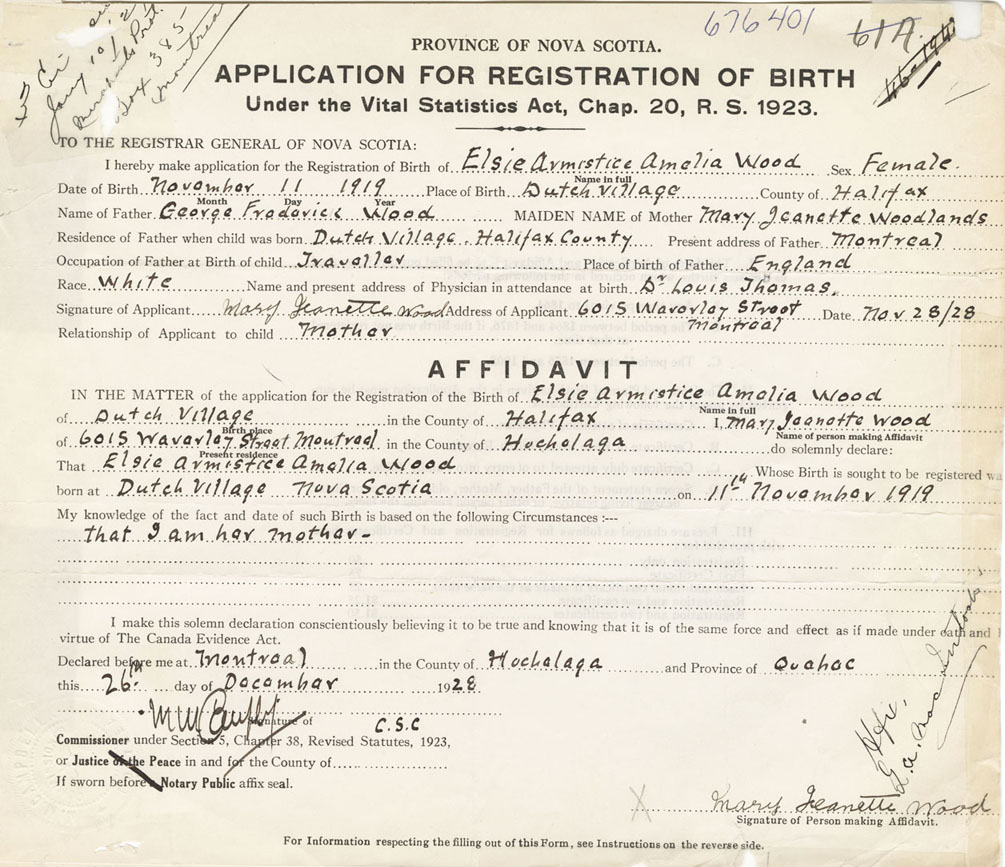 676401 61A
Jany 10/
Box 385
Montreal
PROVINCE OF NOVA SCOTIA.
APPLICATION FOR REGISTRATION OF BIRTH
Under the Vital Statistics Act, Chap. 20, R. S. 1923.
TO THE REGISTRAR GENERAL OF NOVA SCOTIA:
I hereby make application for the Registration of Birth of Elsie Armistice Amelia Wood Sex Female.
Name in full
Date of Birth November 11 1919 Place of Birth Dutch Village County of Halifax
Month Day Year
Name of Father George Frederick Wood MAIDEN NAME of Mother Mary Jeanette Woodlands
Residence of Father when child was born Dutch Village, Halifax County Present address of Father Montreal
Occupation of Father at Birth of child Traveller Place of birth of Father England
Race White Name and present address of Physician in attendance at birth Dr Louis Thomas.
Signature of Applicant Mary Jeanette Wood Address of Applicant 6015 Waverley Street Montreal Date Nov 28/28
Relationship of Applicant to child Mother
AFFIDAVIT
IN THE MATTER of the application for the Registration of the Birth of Elsie Armistice Amelia Wood
Name in full
of Dutch Village in the County of Halifax I, Mary Jeanette Wood
Birth place Name of person making Affidavit
of 6015 Waverley Street Montreal in the County of Hochelaga do solemnly declare:
Present residence
That Elsie Armistice Amelia Wood Whose Birth is sought to be registered
born at Dutch Village Nova Scotia on 11th November 1919
My knowledge of the fact and date of such Birth is based on the following Circumstances :--
that I am her mother-
I make this solemn declaration conscientiously believing it to be true and knowing that it is of the same force and effect as if made under oath and
virtue of The Canada Evidence Act.
Declared before me at Montreal in the County of Hochelaga and Province of Quebec
this 26th day of December 1928.
Signature of C.S.C
Commissioner under Section 5, Chapter 38, Revised Statutes, 1923,
or Justice of the Peace in and for the County of
If sworn before Notary Public affix seal.
X Mary Jeanette Wood
Signature of Person making Affidavit.
For Information respecting the filling out of this Form, see Instructions on the reverse side.